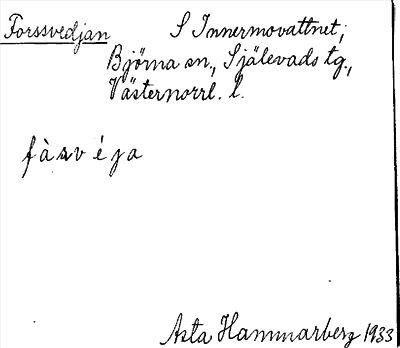 Forssvedjan S Innermovattnet;
Björna sn., Själevads tg.,
Västernorrl. l.
fàsvéja
Asta Hammarberg 1933